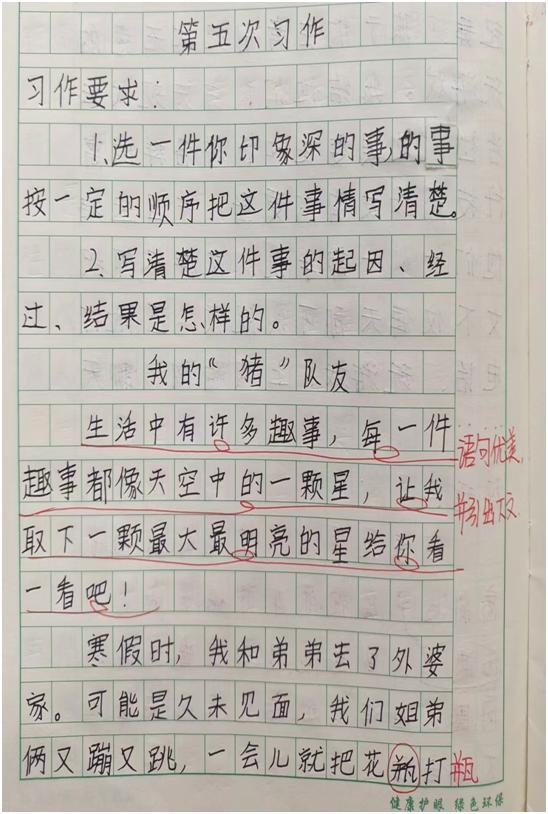 第五次习作
习作要求：
1、选一件你印象深的事,的事
按一定的顺序把这件事情写清楚。
2、写清楚这件事的起因、经
过、结果是怎样的。
我的“猪”队友
生活中有许多趣事，每一件
趣事都像天空中的一颗星，让我
取下一颗最大最明亮的星给你看
一看吧！
语句优美,
并引出下文
寒假时，我和弟弟去了外婆
家。可能是久未见面，我们姐弟
俩又蹦又跳，一会儿就把花瓶打
瓶
健康护眼 绿色环保